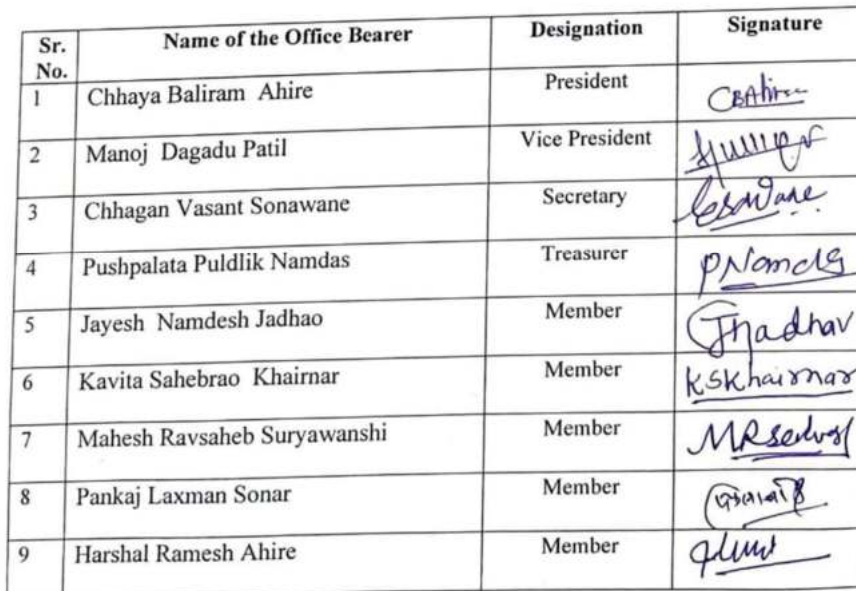 Sr. No. Name of the Office Bearer Designation Signature
1 Chhaya Baliram Ahire President CBAhire
2 Manoj Dagadu Patil Vice President
3 Chhagan Vasant Sonawane Secretary
4 Pushpalata Puldlik Namdas Treasurer PNamds
5 Jayesh Namdesh Jadhao Member
6 Kavita Sahebrao Khairnar Member KSKhairnar
7 Mahesh Ravsaheb Suryawanshi Member
8 Pankaj Laxman Sonar Member
9 Harshal Ramesh Ahire Member